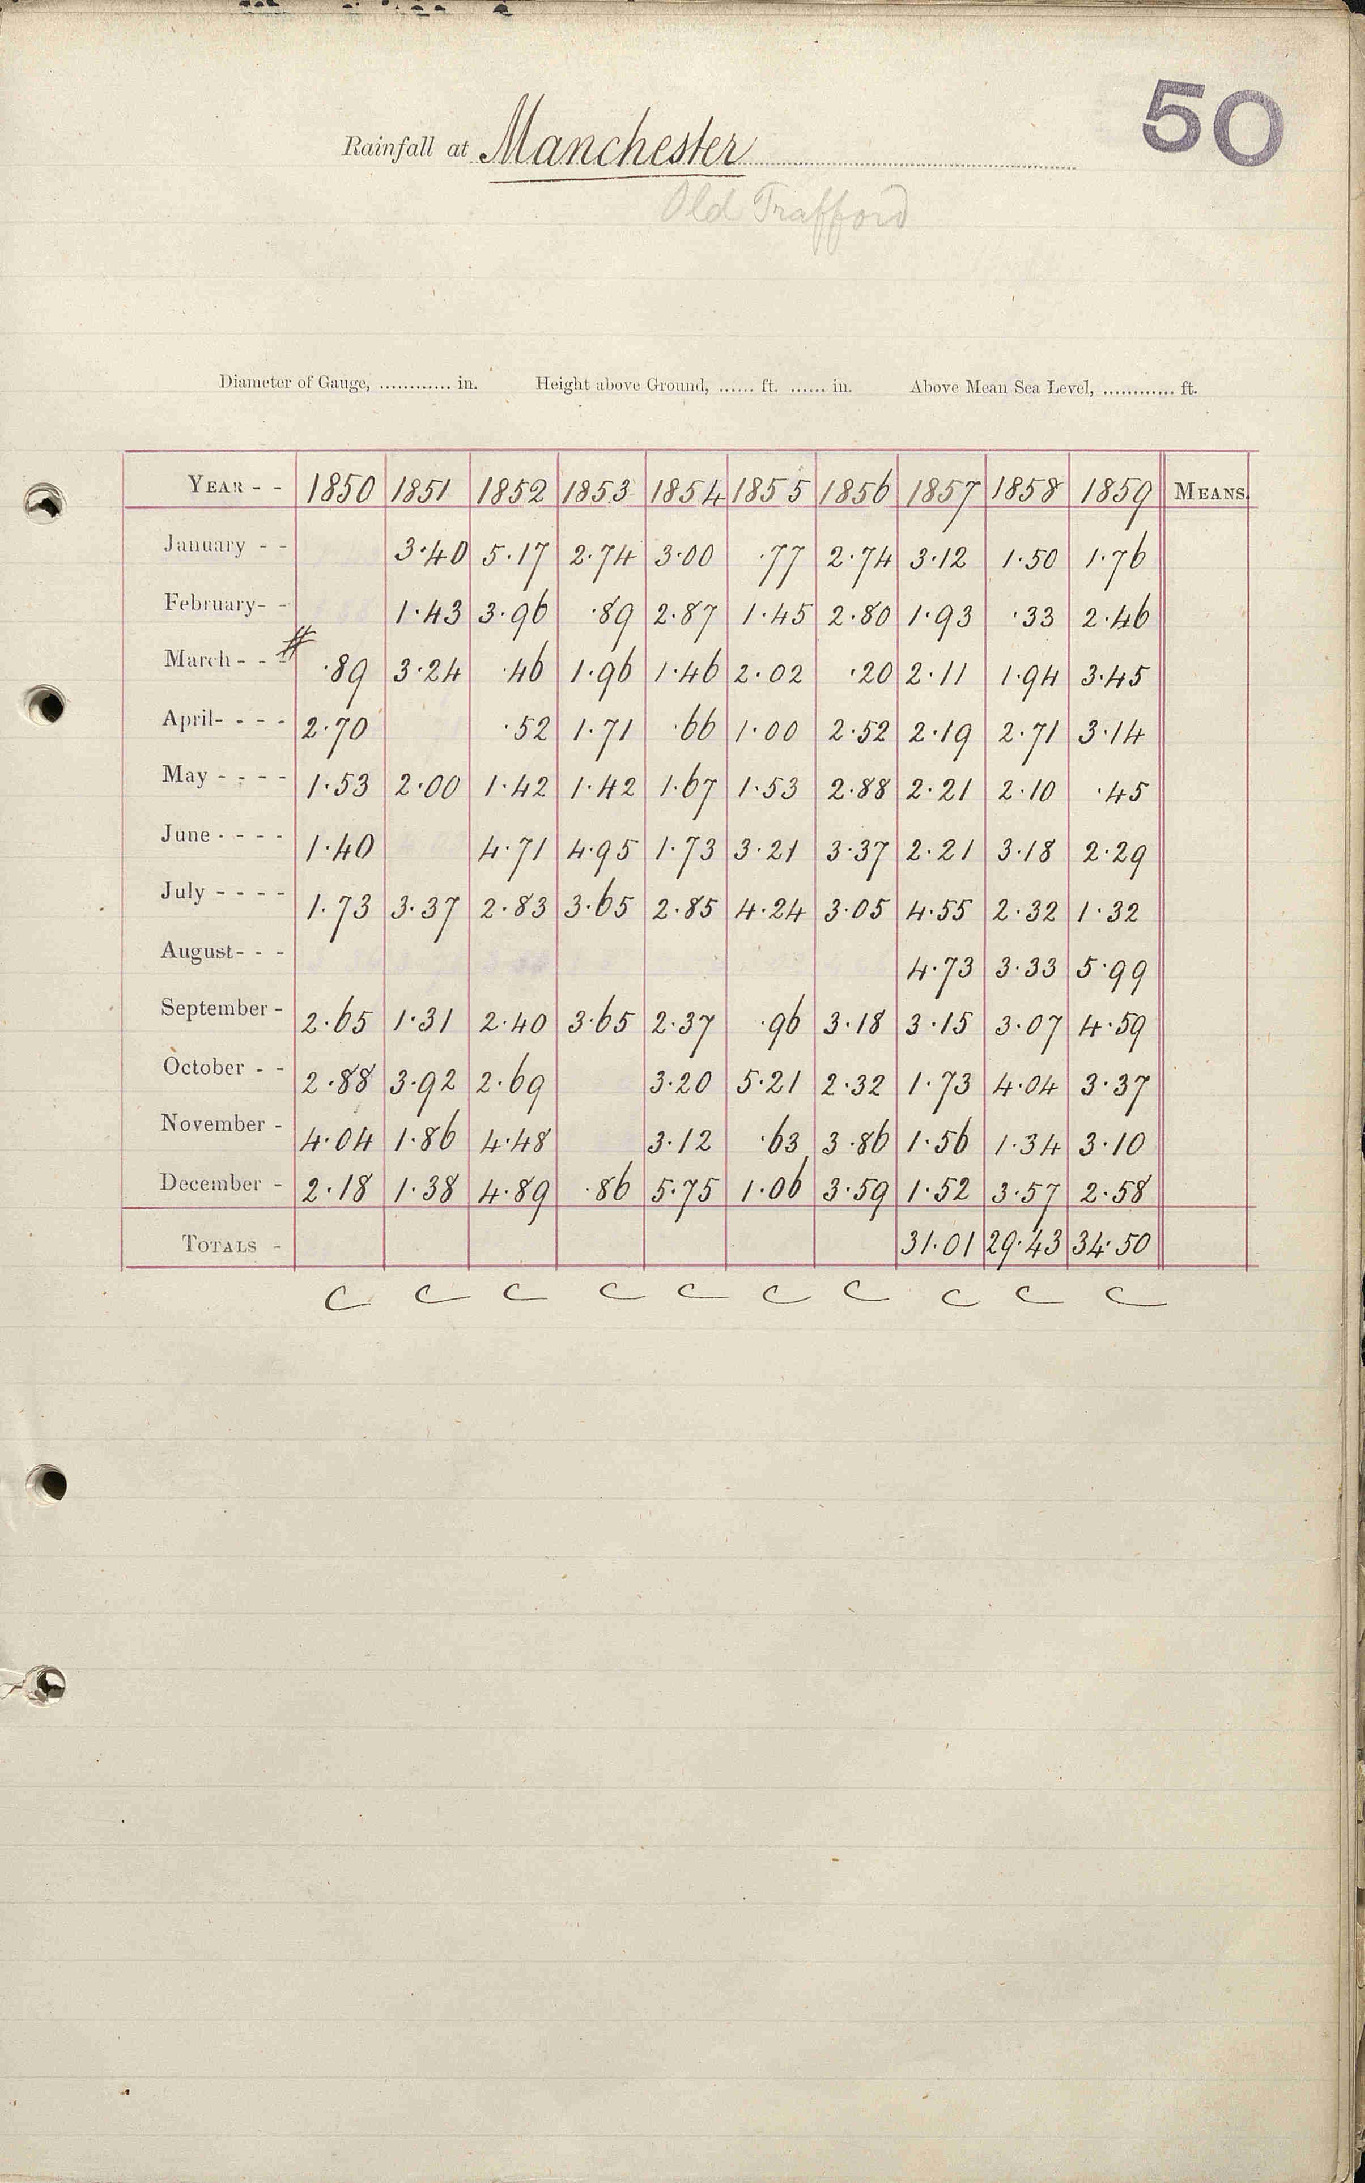 50
Rainfall at Manchester
Old Trafford
Diameter of Gauge, ............ in. Height above Ground, ...... ft. ...... in. Above Mean Sea Level, ............ ft.
YEAR - - 1850 1851 1852 1853 1854 1855 1856 1857 1858 1859 MEANS.
January - - 3.40 5.17 2.74 3.00 .77 2.74 3.12 1.50 1.76
February- - 1.43 3.96 .89 2.87 1.45 2.80 1.93 .33 2.46
March - - - # .89 3.24 .46 1.96 1.46 2.02 .20 2.11 1.94 3.45
April- - - - 2.70 .52 1.71 .66 1.00 2.52 2.19 2.71 3.14
May - - - - 1.53 2.00 1.42 1.42 1.67 1.53 2.88 2.21 2.10 .45
June - - - - 1.40 4.71 4.95 1.73 3.21 3.37 2.21 3.18 2.29
July - - - - 1.73 3.37 2.83 3.65 2.85 4.24 3.05 4.55 2.32 1.32
August- - - 4.73 3.33 5.99
September - 2.65 1.31 2.40 3.65 2.37 .96 3.18 3.15 3.07 4.59
October - - 2.88 3.92 2.69 3.20 5.21 2.32 1.73 4.04 3.37
November - 4.04 1.86 4.48 3.12 .63 3.86 1.56 1.34 3.10
December - 2.18 1.38 4.89 .86 5.75 1.06 3.59 1.52 3.57 2.58
TOTALS - 31.01 29.43 34.50
C C C C C C C C C C